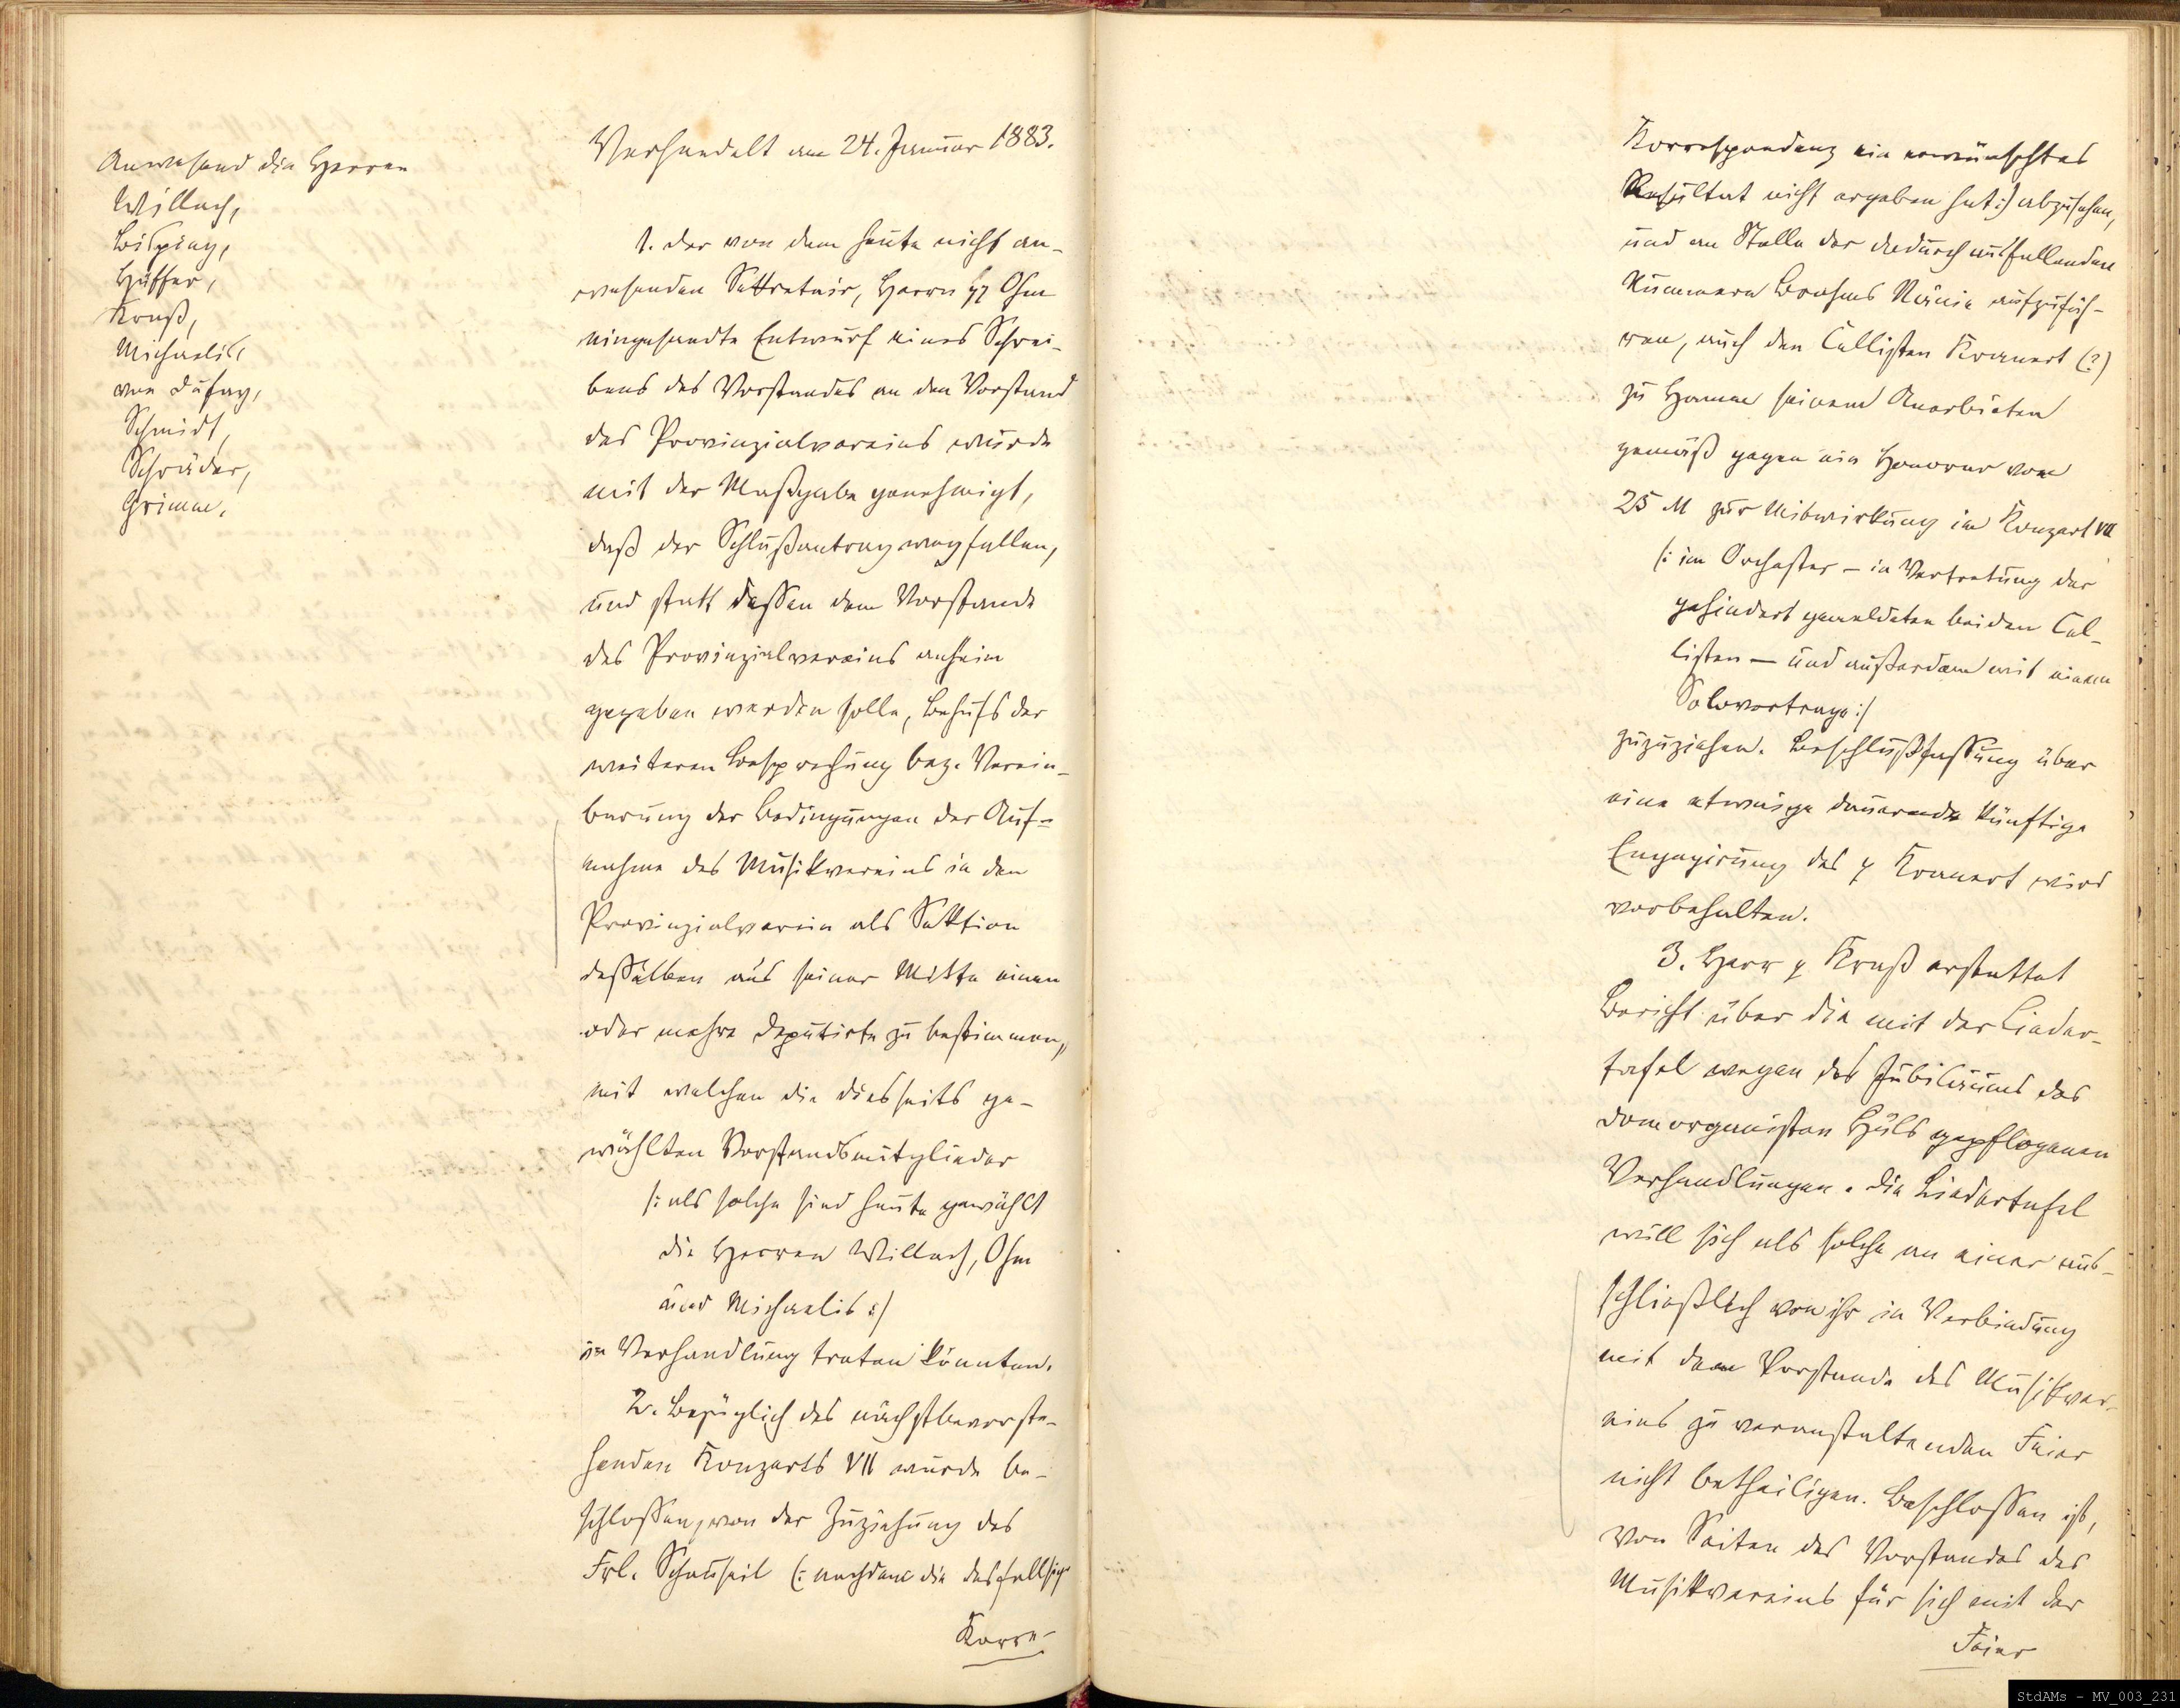 Anwesend die Herren
Willach,
Bisping,
Hüffer,
Kraß,
Michaelis,
von Dufay,
Schmidt,
Schräder,
Grimm.
Verhandelt am 24. Januar 1883.
1. Der von dem heute nicht an-
wesenden Sekretair, Herrn Ohm
eingesandte Entwurf eines Schrei-
bens des Vorstandes an den Vorstand
des Provinzialvereins wurde
mit der Maßgabe genehmigt,
daß der Schlußantrag wegfallen,
und statt dessen dem Vorstande
des Provinzialvereins anheim
gegeben werden solle, Behufs der
weiteren Besprechung bez. Verein-
barung der Bedingungen der Auf-
nahme des Musikvereins in den
Provinzialverein als Sektion
desselben aus seiner Mitte einen
oder mehre Deputirte zu bestimmen,
mit welchen die diesseits ge-
wählten Vorstandsmitglieder
/: als solche sind heute gewählt
die Herren Willach, Ohm
und Michaelis :/
in Verhandlung treten könnten.
2. Bezüglich des nächstbevorste-
henden Konzerts VII wurde be-
schlossen, von der Zuziehung des
Frl. Schauseil (: nachdem die desfallsige
Korre-
Korrespondenz ein erwünschtes
Resultat nicht ergeben hat :) abzusehen,
und an Stelle der dadurch ausfallenden
Nummern Brahms Nänie aufzufüh-
ren, auch den Cellisten Kranert (?)
zu Hamm seinem Anerbieten
gemäß gegen ein Honorar von
25 M zur Mitwirkung im Konzert VII
/: im Orchester – in Vertretung der
gehindert gemeldeten beiden Cel-
listen – und außerdem mit einem
Solovortrage :/
zuzuziehen. Beschlußfassung über
eine etwaige dauernde künftige
Engagirung des Kranert wird
vorbehalten.
3. Herr Kraß erstattet
Bericht über die mit der Lieder-
tafel wegen des Jubiläums des
Domorganisten Hüls gepflogenen
Verhandlungen. Die Liedertafel
will sich als solche an einer aus-
schließlich von ihr in Verbindung
mit dem Vorstande des Musikver-
eins zu veranstaltenden Feier
nicht betheiligen. Beschlossen ist,
von Seiten des Vorstandes des
Musikvereins für sich mit der
Feier
StdAMs - MV_003_231